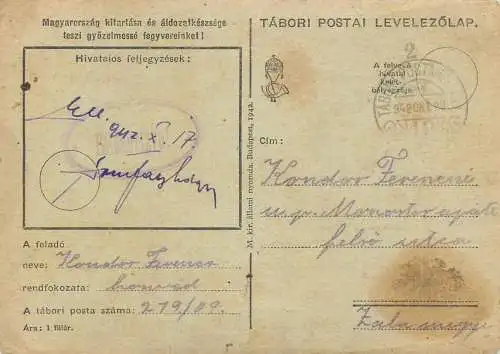 Magyarország kitartása és áldozatkészsége
teszi győzelmessé fegyvereinket!
Hivatalos feljegyzések:
Ell.
942. X. 17.
A feladó
neve: Kondor Ferenc
rendfokozata: honvéd
A tábori posta száma: 219/09.
Ára: 1 fillér.
M. kir. állami nyomda. Budapest, 1942.
TÁBORI POSTAI LEVELEZŐLAP.
2
A felvevő
hivatal
kelet-
bélyegzője
TÁBORI
942 OKT
Cím:
Kondor Ferencné
u.p. Monostorapáti
felső utca
Zala megye